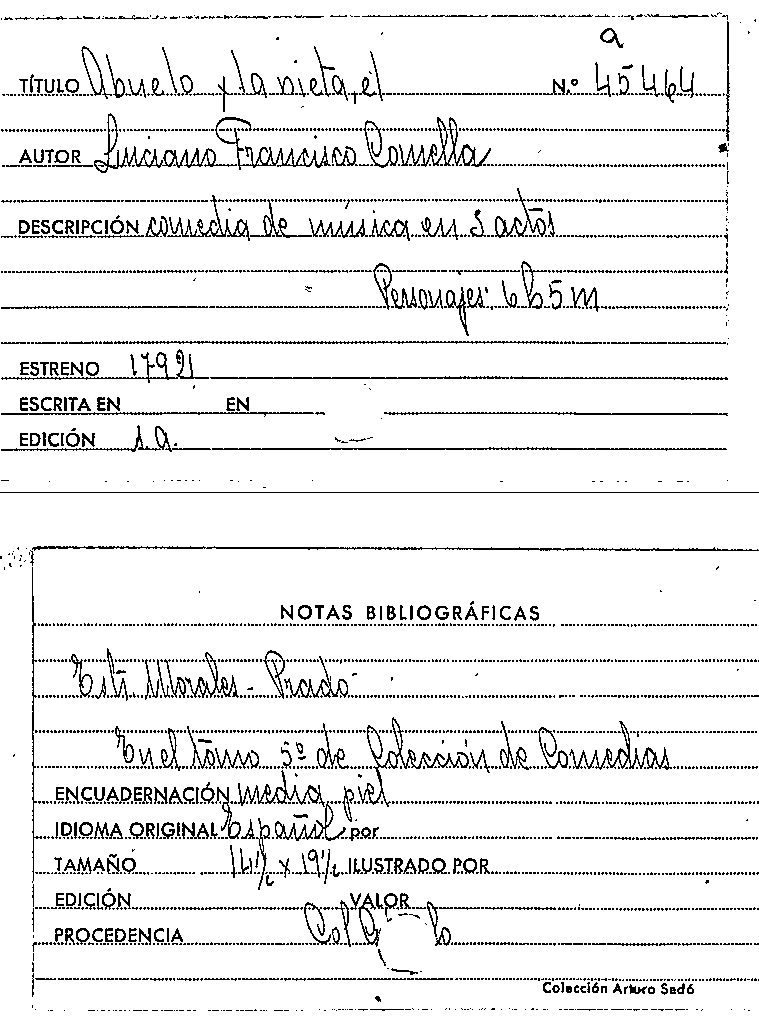 a
TÍTULO Abuelo y la nieta, el N.º 45464
AUTOR Luciano Francisco Comella
DESCRIPCIÓN comedia de música en 3 actos
Personajes: 6 h 5 m
ESTRENO 1792
ESCRITA EN EN
EDICIÓN s.a.
NOTAS BIBLIOGRÁFICAS
Morales - Prado
En el tomo 5º de Colección de Comedias
ENCUADERNACIÓN media piel
IDIOMA ORIGINAL Español por
TAMAÑO 14½ x 19½ ILUSTRADO POR
EDICIÓN VALOR
PROCEDENCIA Col
Colección Arturo Sedó